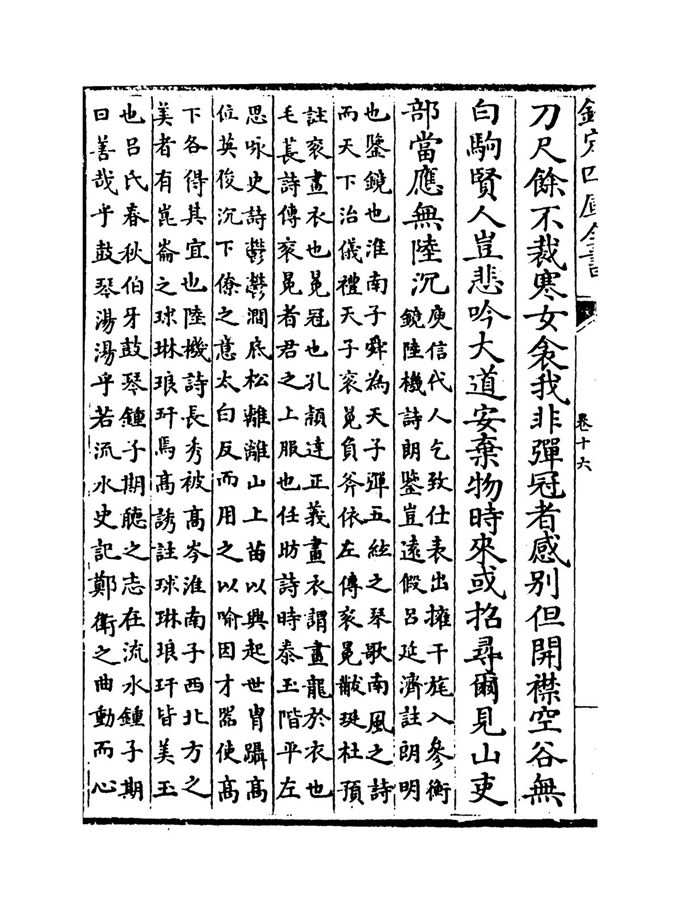 欽定四庫全書
卷十六
刀尺餘不裁寒女衾我非彈冠者感别但開襟空谷無
白駒賢人豈悲吟大道安棄物時來或招尋爾見山吏
部當應無陸沉
庾信代人乞致仕表出擁干旄入參衡
鏡陸機詩朗鑒豈遠假呂延濟註朗明
也鑒鏡也淮南子舜為天子彈五絃之琴歌南風之詩
而天下治儀禮天子衮冕負斧依左傳衮冕黻珽杜預
註衮畫衣也冕冠也孔頴達正義畫衣謂畫龍於衣也
毛萇詩傳衮冕者君之上服也任昉詩時泰玉階平左
思咏史詩鬱鬱澗底松離離山上苗以興起世胄躡高
位英俊沉下僚之意太白反而用之以喻因才器使高
下各得其宜也陸機詩長秀被高岑淮南子西北方之
美者有崑崙之球琳琅玕焉高誘註球琳琅玕皆美玉
也呂氏春秋伯牙鼓琴鍾子期聽之志在流水鍾子期
曰善哉乎鼓琴湯湯乎若流水史記鄭衛之曲動而心